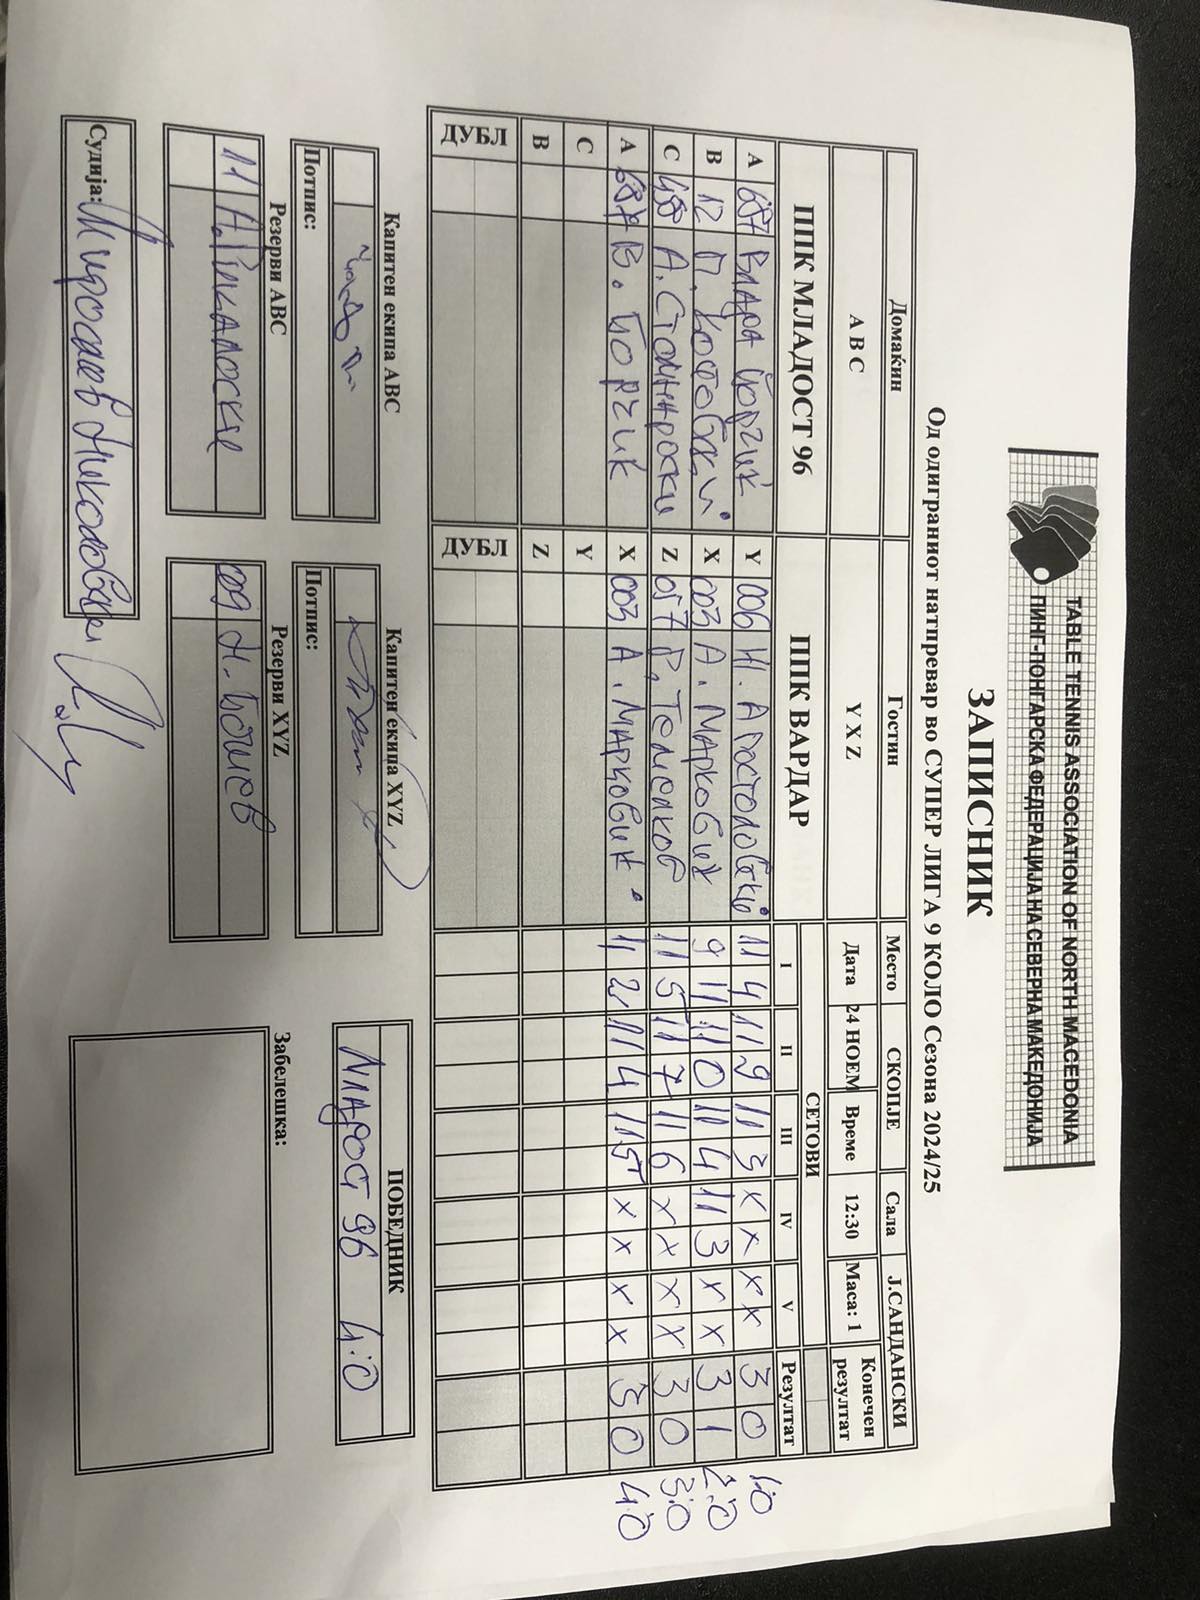 TABLE TENNIS ASSOCIATION OF NORTH MACEDONIA
ПИНГ-ПОНГАРСКА ФЕДЕРАЦИЈА НА СЕВЕРНА МАКЕДОНИЈА
ЗАПИСНИК
Од одиграниот натпревар во СУПЕР ЛИГА 9 КОЛО Сезона 2024/25
Домаќин Гостин Место СКОПЈЕ Сала Ј.САНДАНСКИ
A B C Y X Z Дата 24 НОЕМ Време 12:30 Маса: 1 Конечен резултат
ППК МЛАДОСТ 96 ППК ВАРДАР СЕТОВИ
I II III IV V Резултат
A 687 Y 006 11 4 11 9 11 3 x x x x 3 0 1:0
B 12 X 003 А. Марковиќ 9 11 11 0 11 4 11 3 x x 3 1 2:0
C А. Стоминроски Z 057 Р. Темелков 11 5 11 7 11 6 x x x x 3 0 3:0
A 687 В. Борчиќ X 003 А. Марковиќ 11 2 11 4 11 5 x x x x 3 0 4:0
C Y
B Z
ДУБЛ ДУБЛ
Капитен екипа ABC Капитен екипа XYZ ПОБЕДНИК
Младост 96 4:0
Потпис: Потпис:
Резерви ABC Резерви XYZ Забелешка:
11 009 Н. Бошев
Судија: